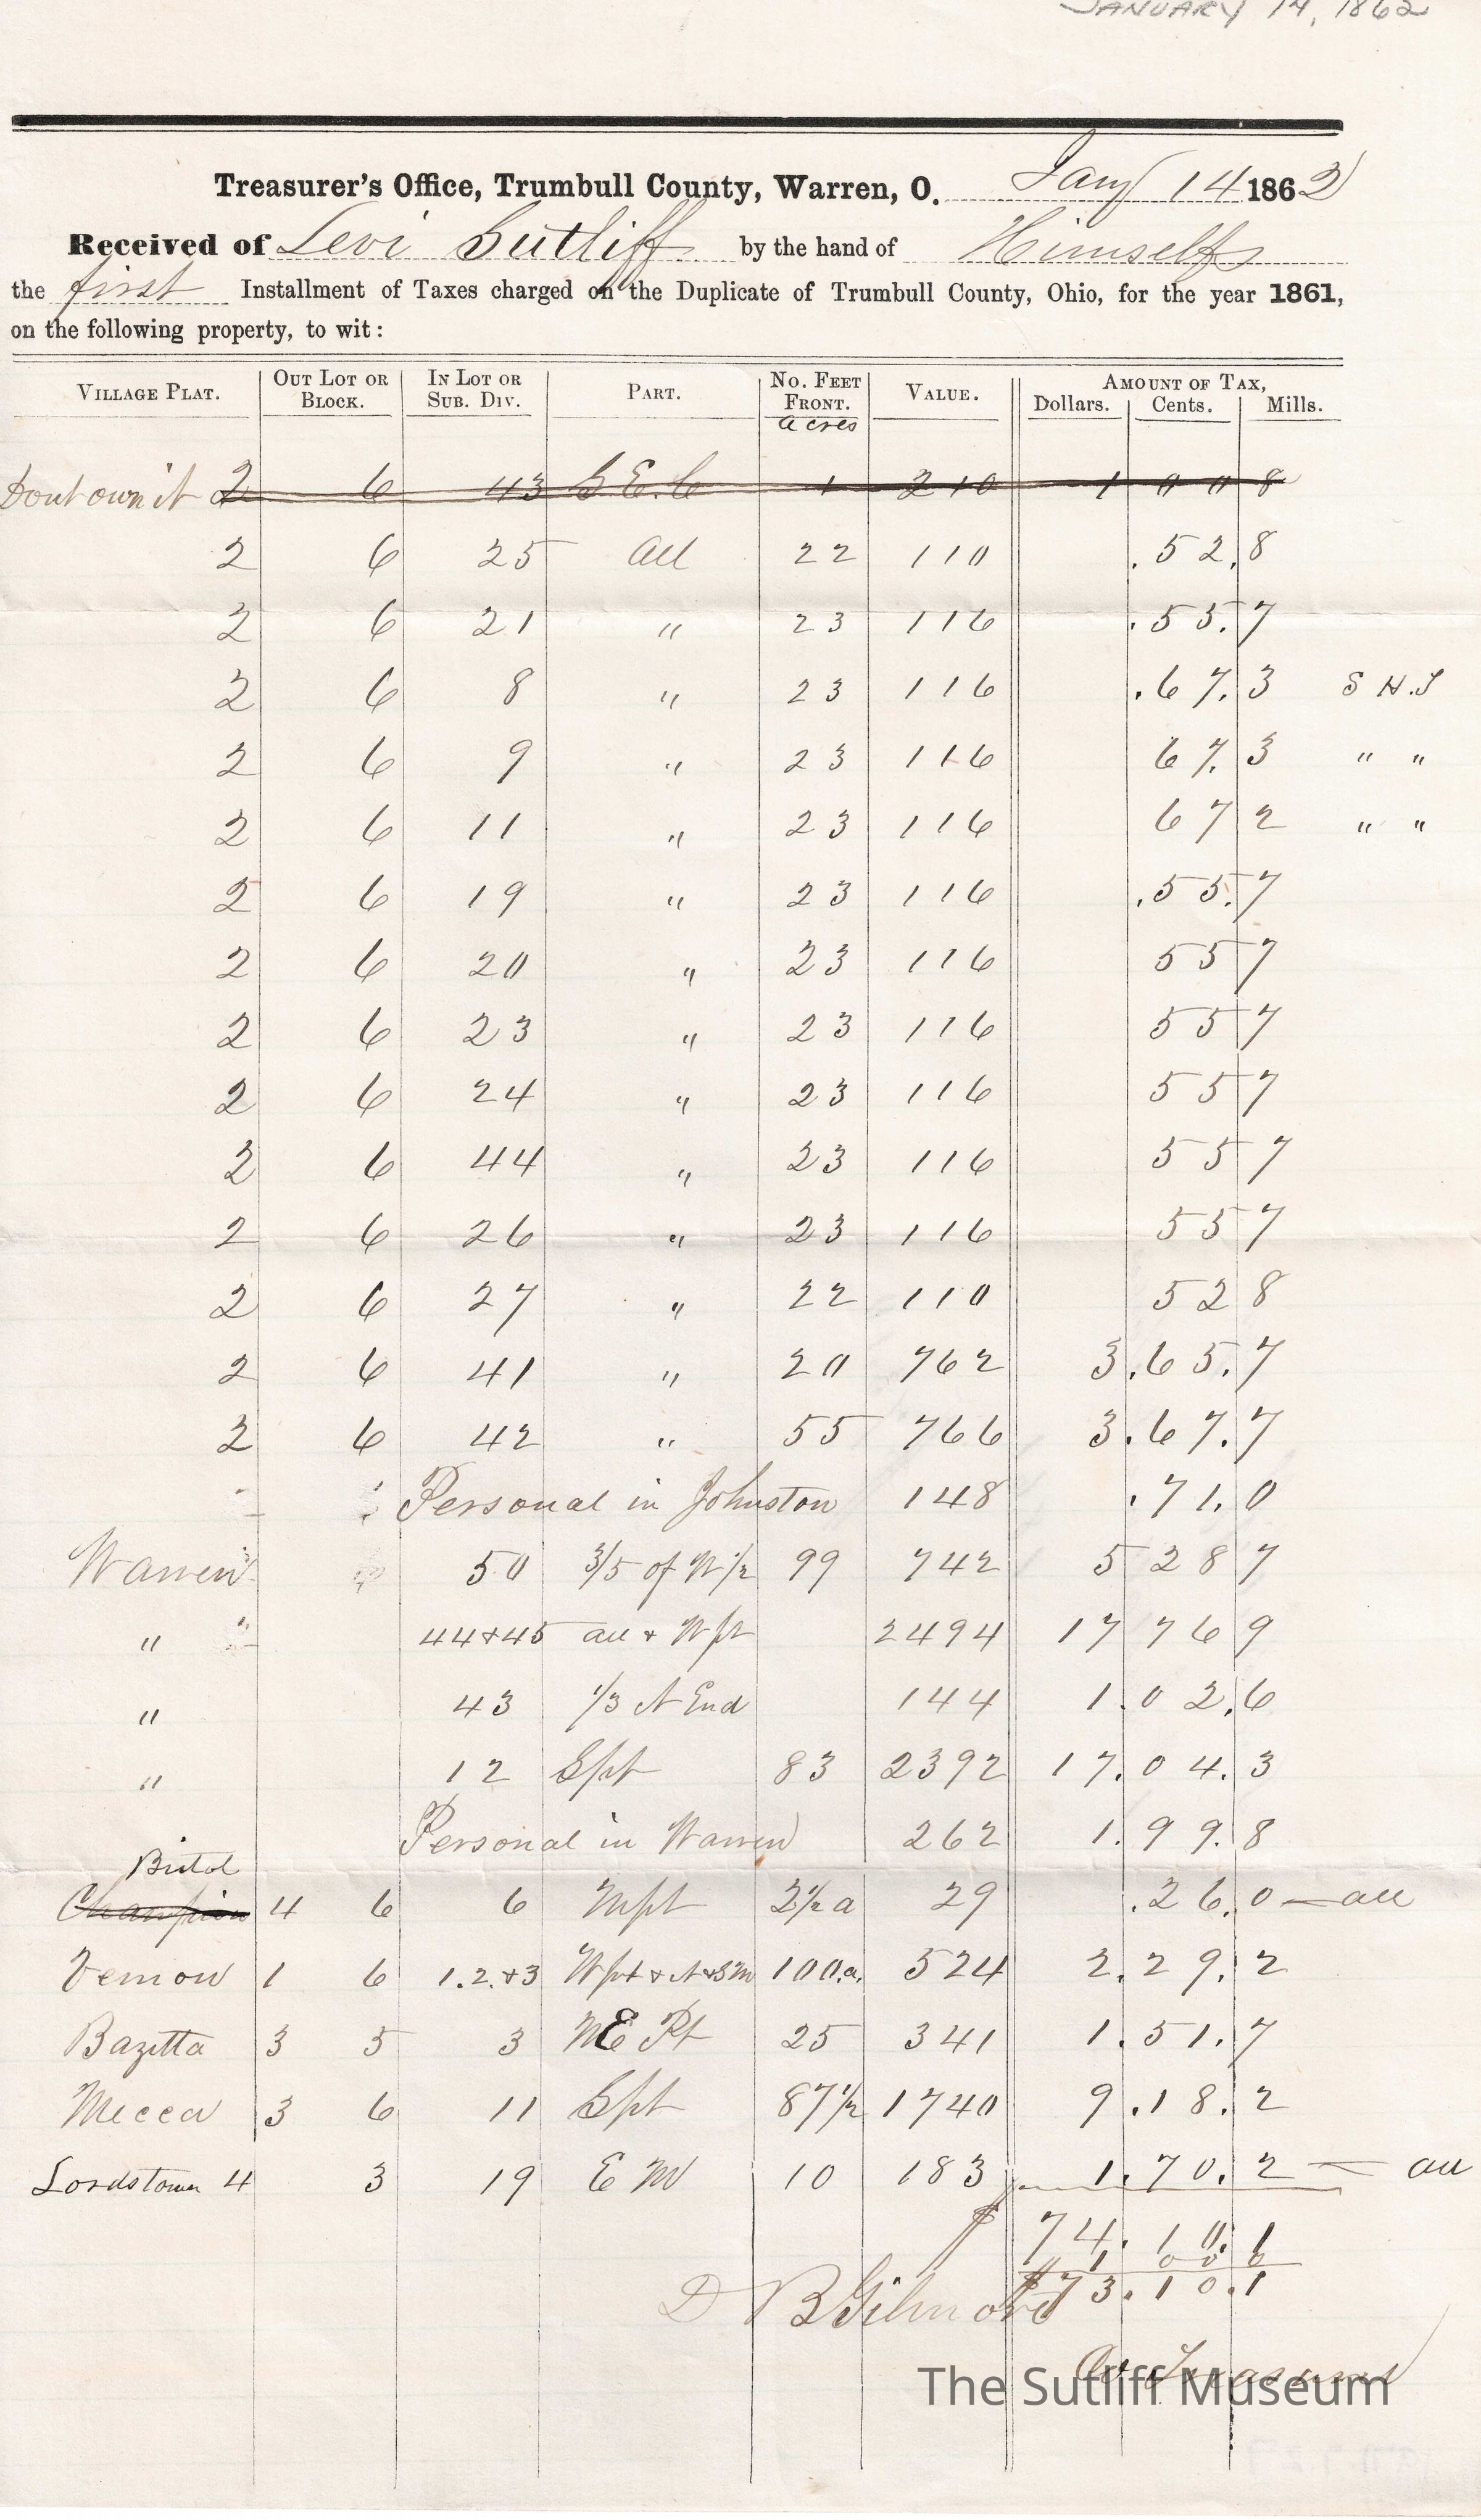 JANUARY 14, 1862
Treasurer's Office, Trumbull County, Warren, O. Jany 14 1862
Received of Levi Sutliff by the hand of Himself
the first Installment of Taxes charged on the Duplicate of Trumbull County, Ohio, for the year 1861,
on the following property, to wit:
VILLAGE PLAT. OUT LOT OR BLOCK. IN LOT OR SUB. DIV. PART. NO. FEET FRONT. acres VALUE. AMOUNT OF TAX, Dollars. Cents. Mills.
Dont own it 2 6 43 S.E.C 1 210 1 00 8
2 6 25 all 22 110 .52.8
2 6 21 " 23 116 .55.7
2 6 8 " 23 116 .67.3 S H.S
2 6 9 " 23 116 67.3 " "
2 6 11 " 23 116 67 2 " "
2 6 19 " 23 116 .55.7
2 6 20 " 23 116 55 7
2 6 23 " 23 116 55 7
2 6 24 " 23 116 55 7
2 6 44 " 23 116 55 7
2 6 26 " 23 116 55 7
2 6 27 " 22 110 52 8
2 6 41 " 20 762 3.65.7
2 6 42 " 55 766 3.67.7
Personal in Johnston 148 .71.0
Warren 50 3/5 of W 1/2 99 742 5 28 7
" 44 & 45 all & W pt 2494 17 76 9
" 43 1/3 N End 144 1.02.6
" 12 S pt 83 2392 17.04.3
Personal in Warren 262 1.99.8
Bristol
Champion 4 6 6 M pt 2 1/2 a 29 .26.0 — all
Vernon 1 6 1.2.&3 W pt & N & S M 100.a. 524 2.29.2
Bazetta 3 5 3 N E Pt 25 341 1.51.7
Mecca 3 6 11 S pt 87 1/2 1740 9.18.2
Lordstown 4 3 19 E M 10 183 1.70.2 — all
$ 74.10.1
1 00 0
$73.10.1
D B Gilmore
Co Treasurer
The Sutliff Museum